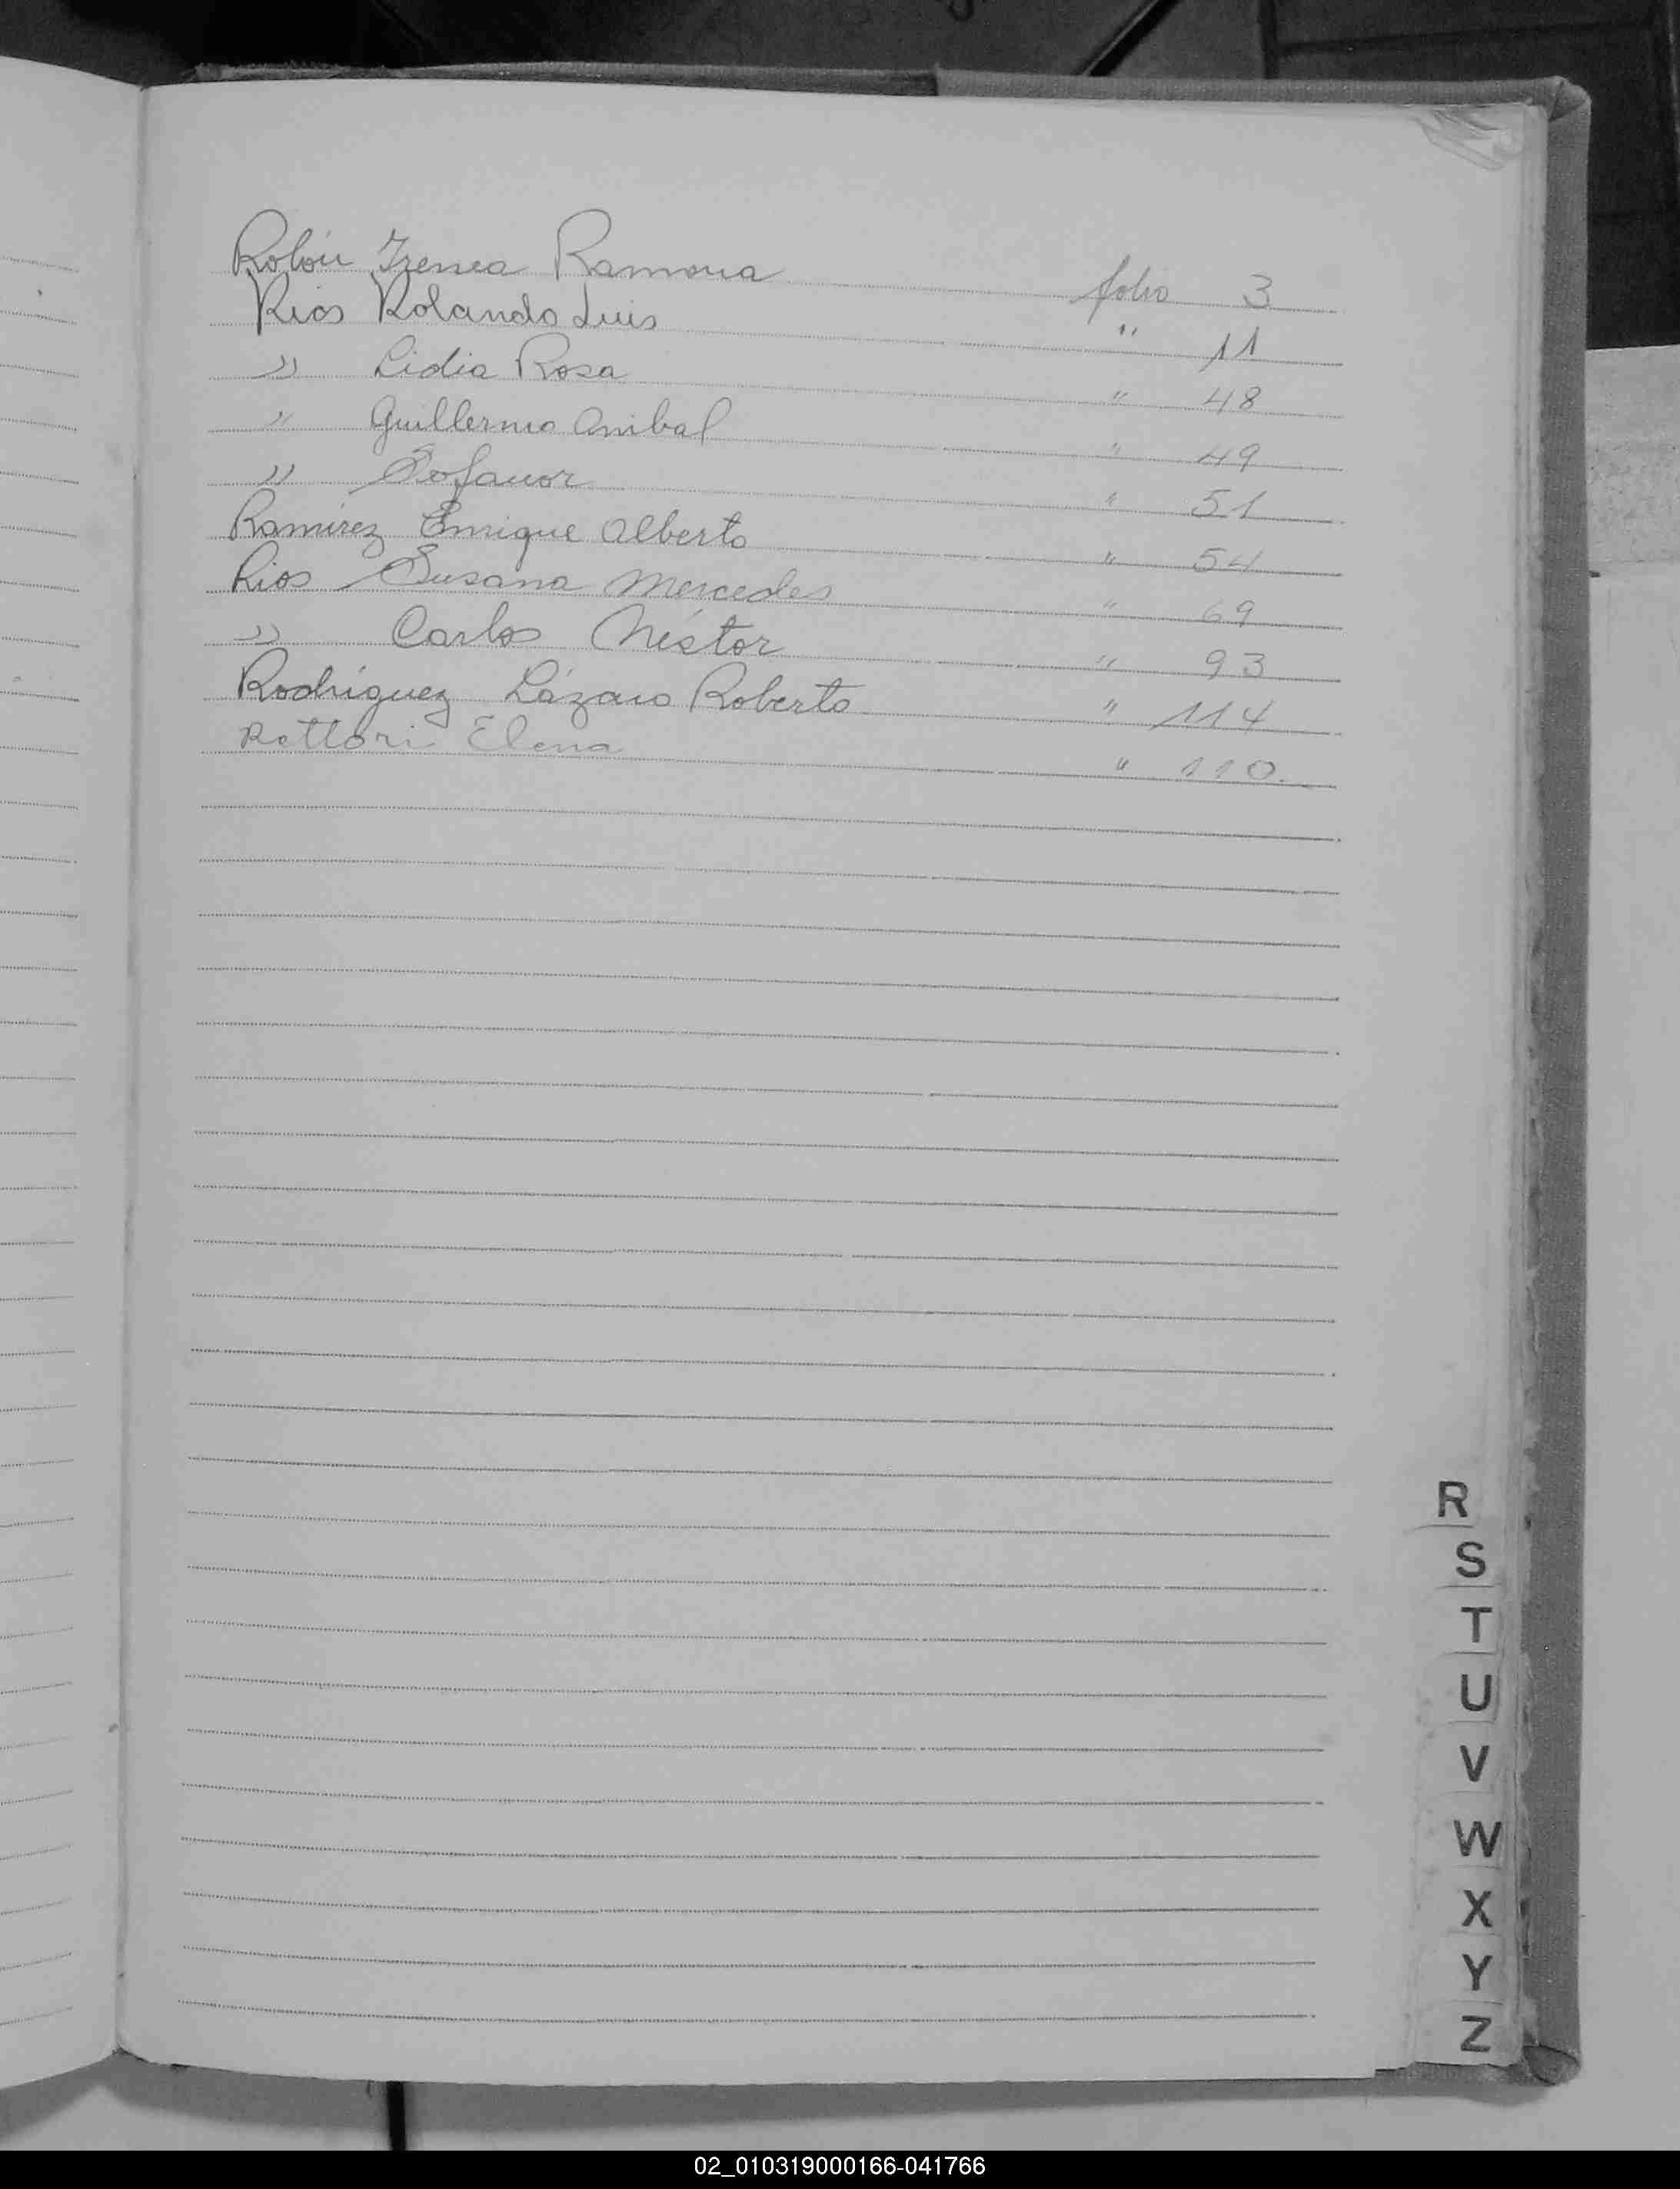 Rolón Irenea Ramona folio 3
Rios Rolando Luis " 11
" Lidia Rosa " 48
" Guillermo Anibal " 49
" Sofanor " 51
Ramírez Enrique Alberto " 54
Rios Susana Mercedes " 69
" Carlos Néstor " 93
Rodríguez Lázaro Roberto " 114
Rettori Elena " 110.
R
S
T
U
V
W
X
Y
Z
02_010319000166-041766